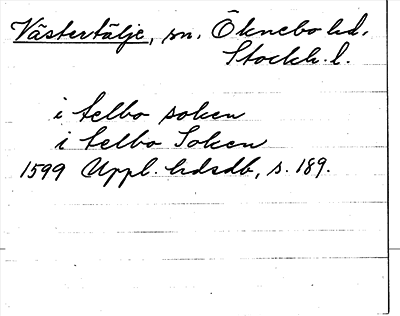 Västertälje, sn. Öknebo hd.
Stockh. l.
i telbo soken
i telbo Soken
1599 Uppl. hdsdb, s. 189.